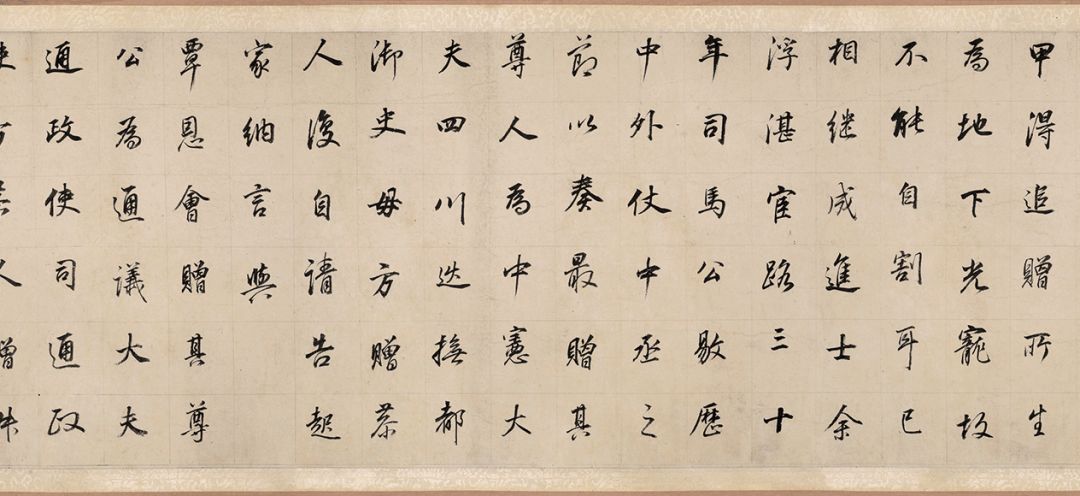 甲得追贈所生
為地下光寵故
不能自割耳已
相继成進士余
浮湛宦路三十
年司馬公敭歷
中外仗中丞之
節以奏最贈其
尊人為中憲大
夫四川巡撫都
御史母方贈恭
人復自請告起
家納言與
覃恩會贈其尊
公為通議大夫
通政使司通政